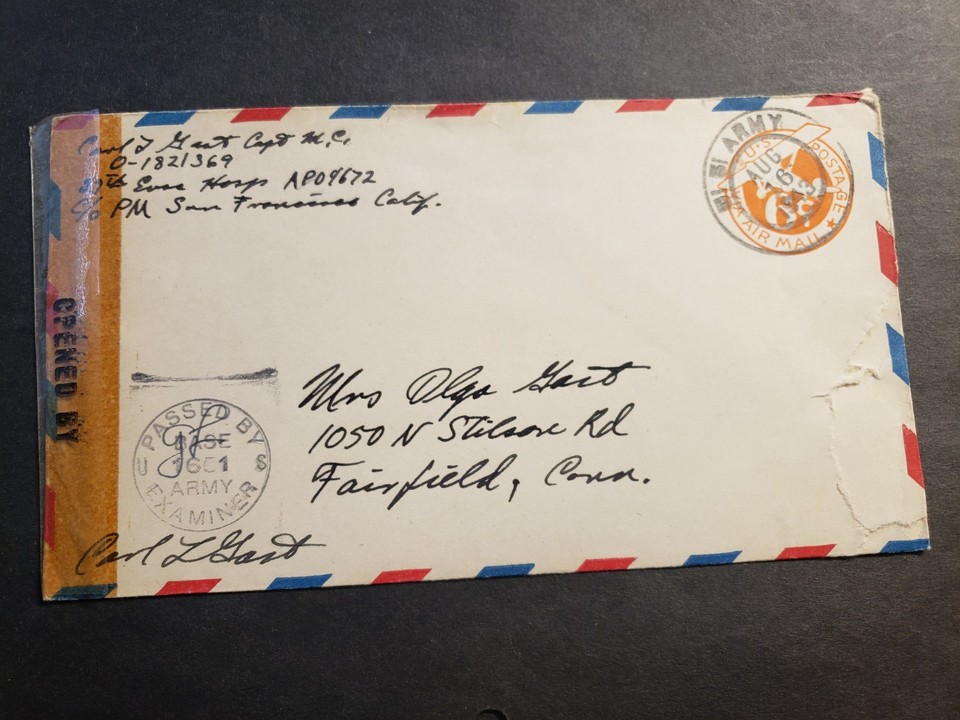 Carl L Gast Capt M.C.
O-1821369
Evac Hosp APO 9672
c/o PM San Francisco Calif.
ARMY
AUG
16
1943
U.S. POSTAGE
6¢
VIA AIR MAIL
OPENED BY
PASSED BY
BASE
1601
U S
ARMY
EXAMINER
Mrs Olga Gast
1050 N Stilson Rd
Fairfield, Conn.
Carl L Gast